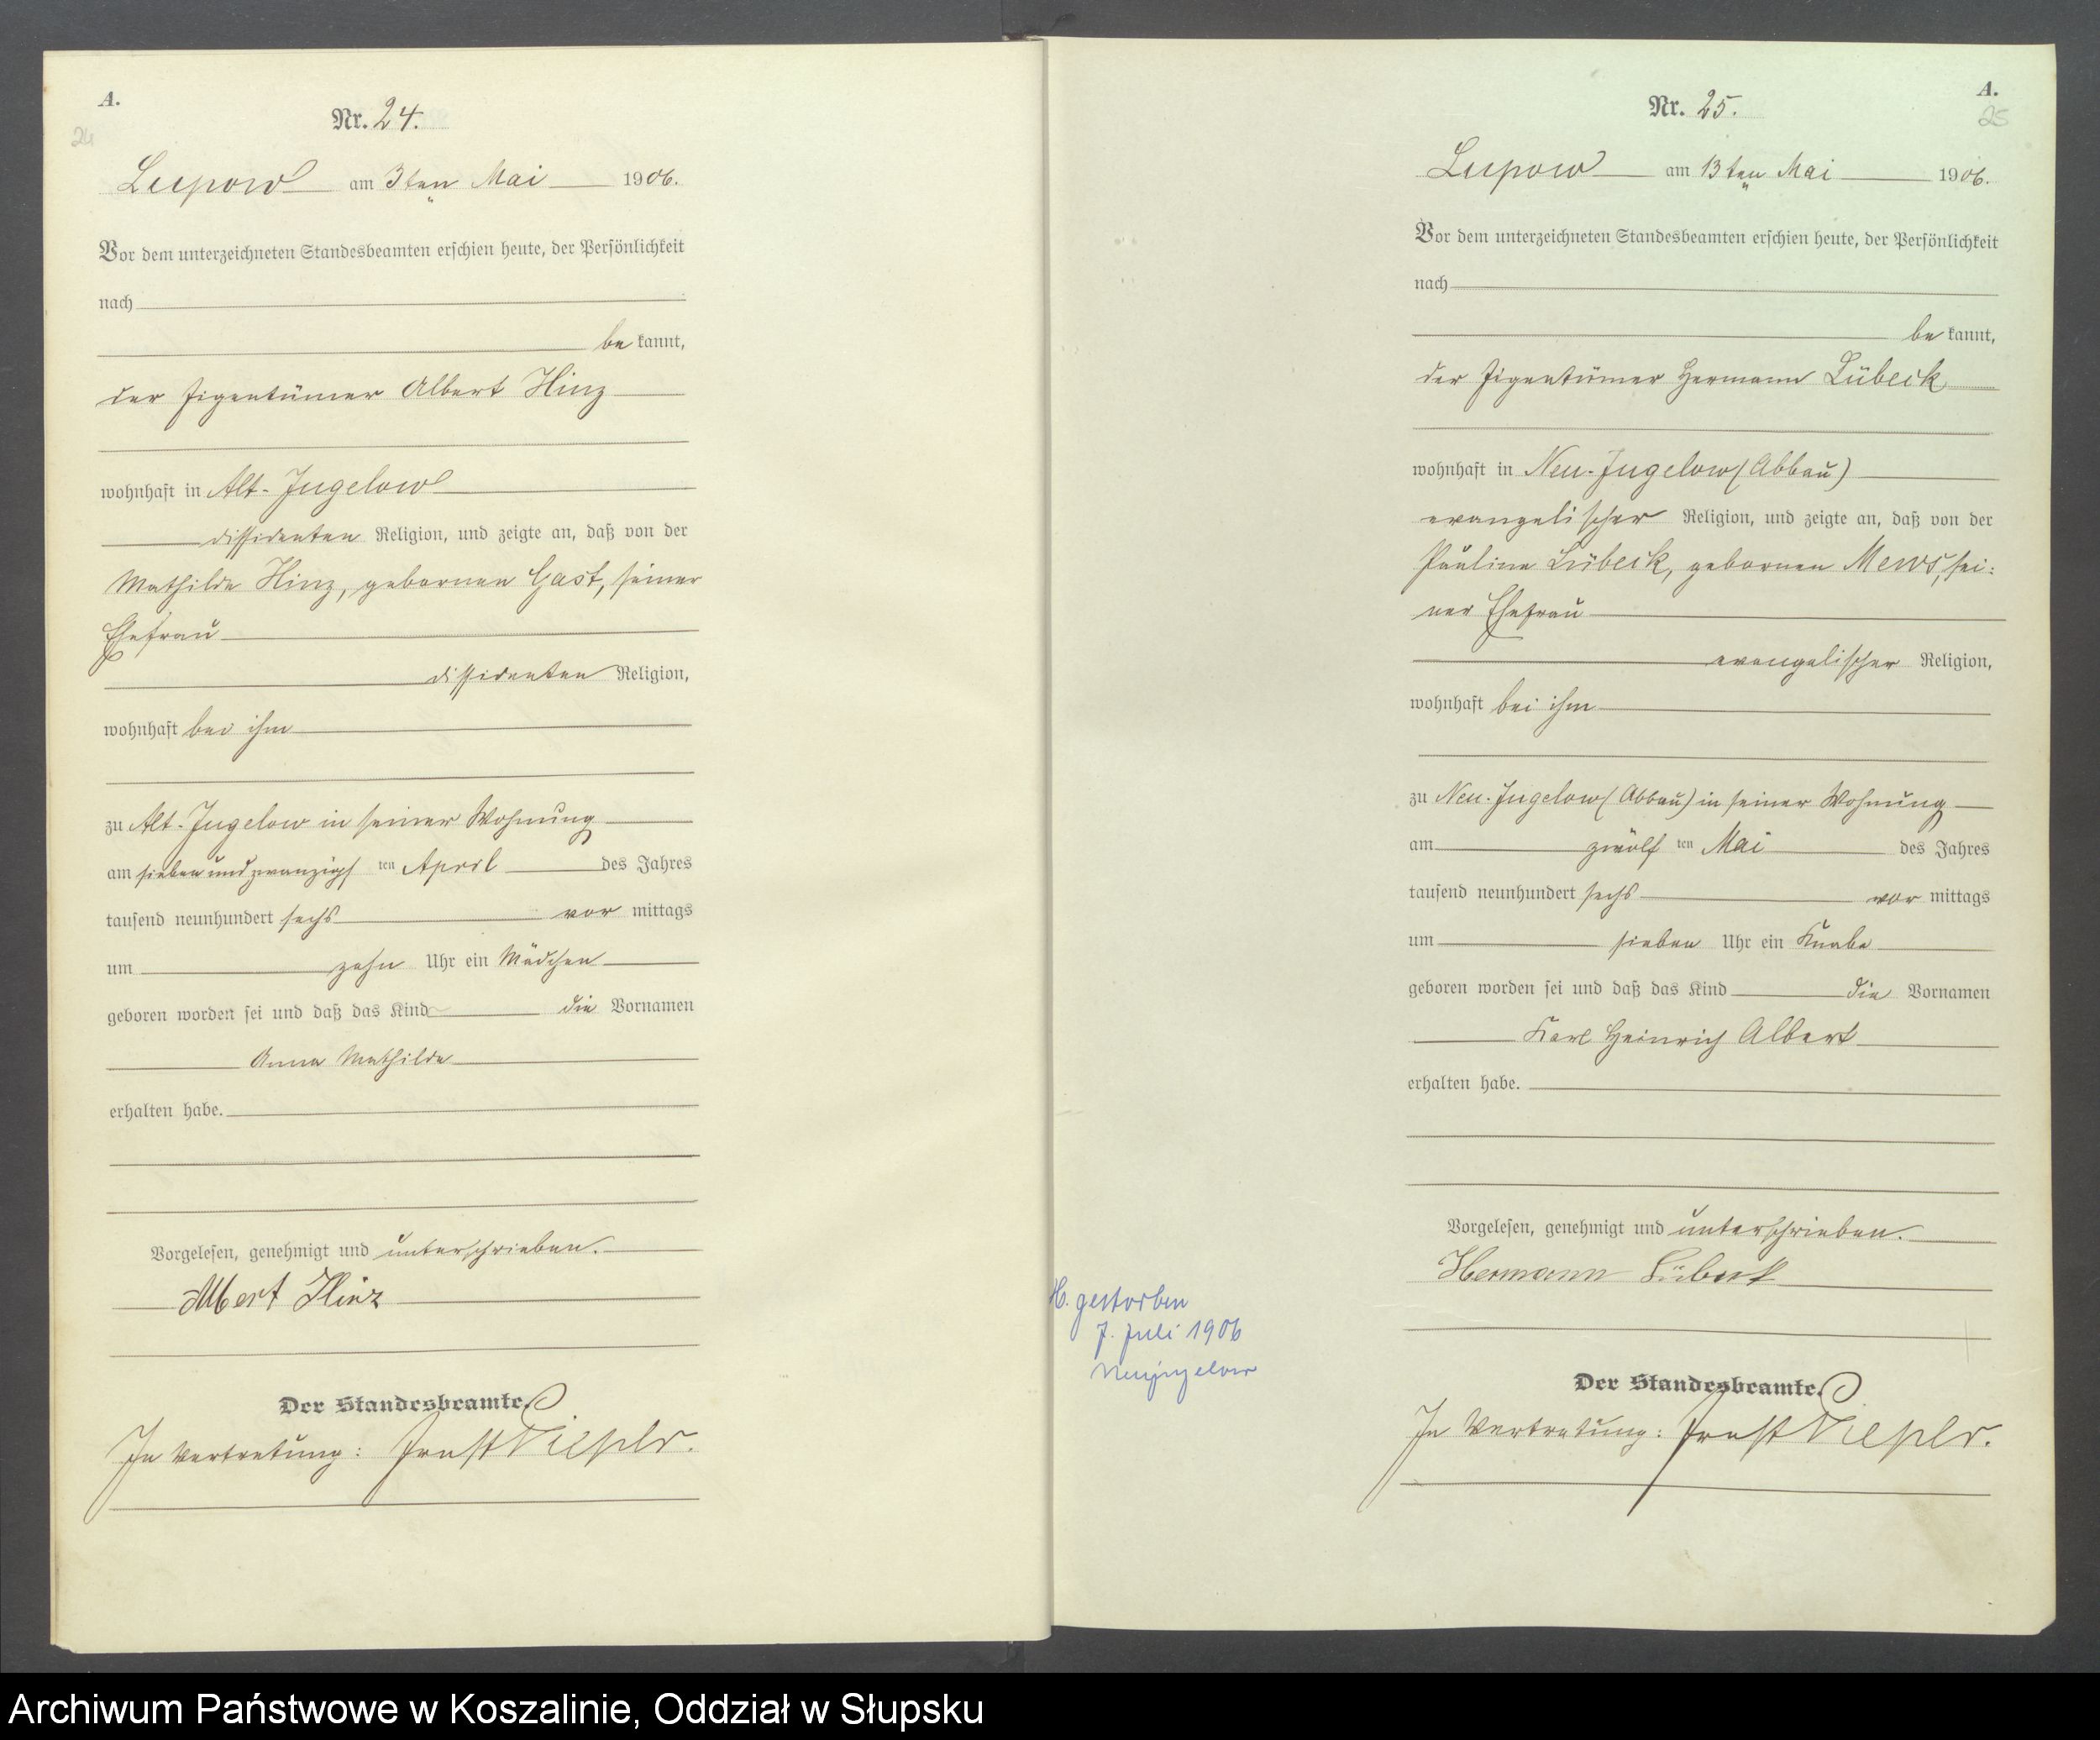 A.
24
Nr. 24.
Lupow am 3ten Mai 1906.
Vor dem unterzeichneten Standesbeamten erschien heute, der Persönlichkeit
nach
be kannt,
der Eigentümer Albert Hinz
wohnhaft in Alt-Jugelow
dissidenten Religion, und zeigte an, daß von der
Mathilde Hinz, gebornen Gast, seiner
Ehefrau
dissidenten Religion,
wohnhaft bei ihm
zu Alt-Jugelow in seiner Wohnung
am sieben und zwanzigs ten April des Jahres
tausend neunhundert sechs vor mittags
um zehn Uhr ein Mädchen
geboren worden sei und daß das Kind die Vornamen
Anna Mathilde
erhalten habe.
Vorgelesen, genehmigt und unterschrieben.
Albert Hinz
Der Standesbeamte.
In Vertretung: Ernst
A.
25
Nr. 25.
Lupow am 13ten Mai 1906.
Vor dem unterzeichneten Standesbeamten erschien heute, der Persönlichkeit
nach
be kannt,
der Eigentümer Hermann Lübeck
wohnhaft in Neu-Jugelow (Abbau)
evangelischer Religion, und zeigte an, daß von der
Pauline Lübeck, gebornen Mews, sei:
ner Ehefrau
evangelischer Religion,
wohnhaft bei ihm
zu Neu-Jugelow (Abbau) in seiner Wohnung
am zwölf ten Mai des Jahres
tausend neunhundert sechs vor mittags
um sieben Uhr ein Knabe
geboren worden sei und daß das Kind die Vornamen
Karl Heinrich Albert
erhalten habe.
Vorgelesen, genehmigt und unterschrieben.
Hermann Lübeck
H. gestorben
7. Juli 1906
Neujugelow
Der Standesbeamte.
In Vertretung: Ernst
Archiwum Państwowe w Koszalinie, Oddział w Słupsku